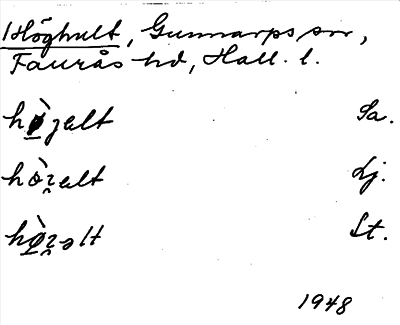 Höghult, Gunnarps sn,
Faurås hd, Hall. l.
hø̀jalt Sa.
hòʒalt Lj.
hø̀ʒəlt St.
1948